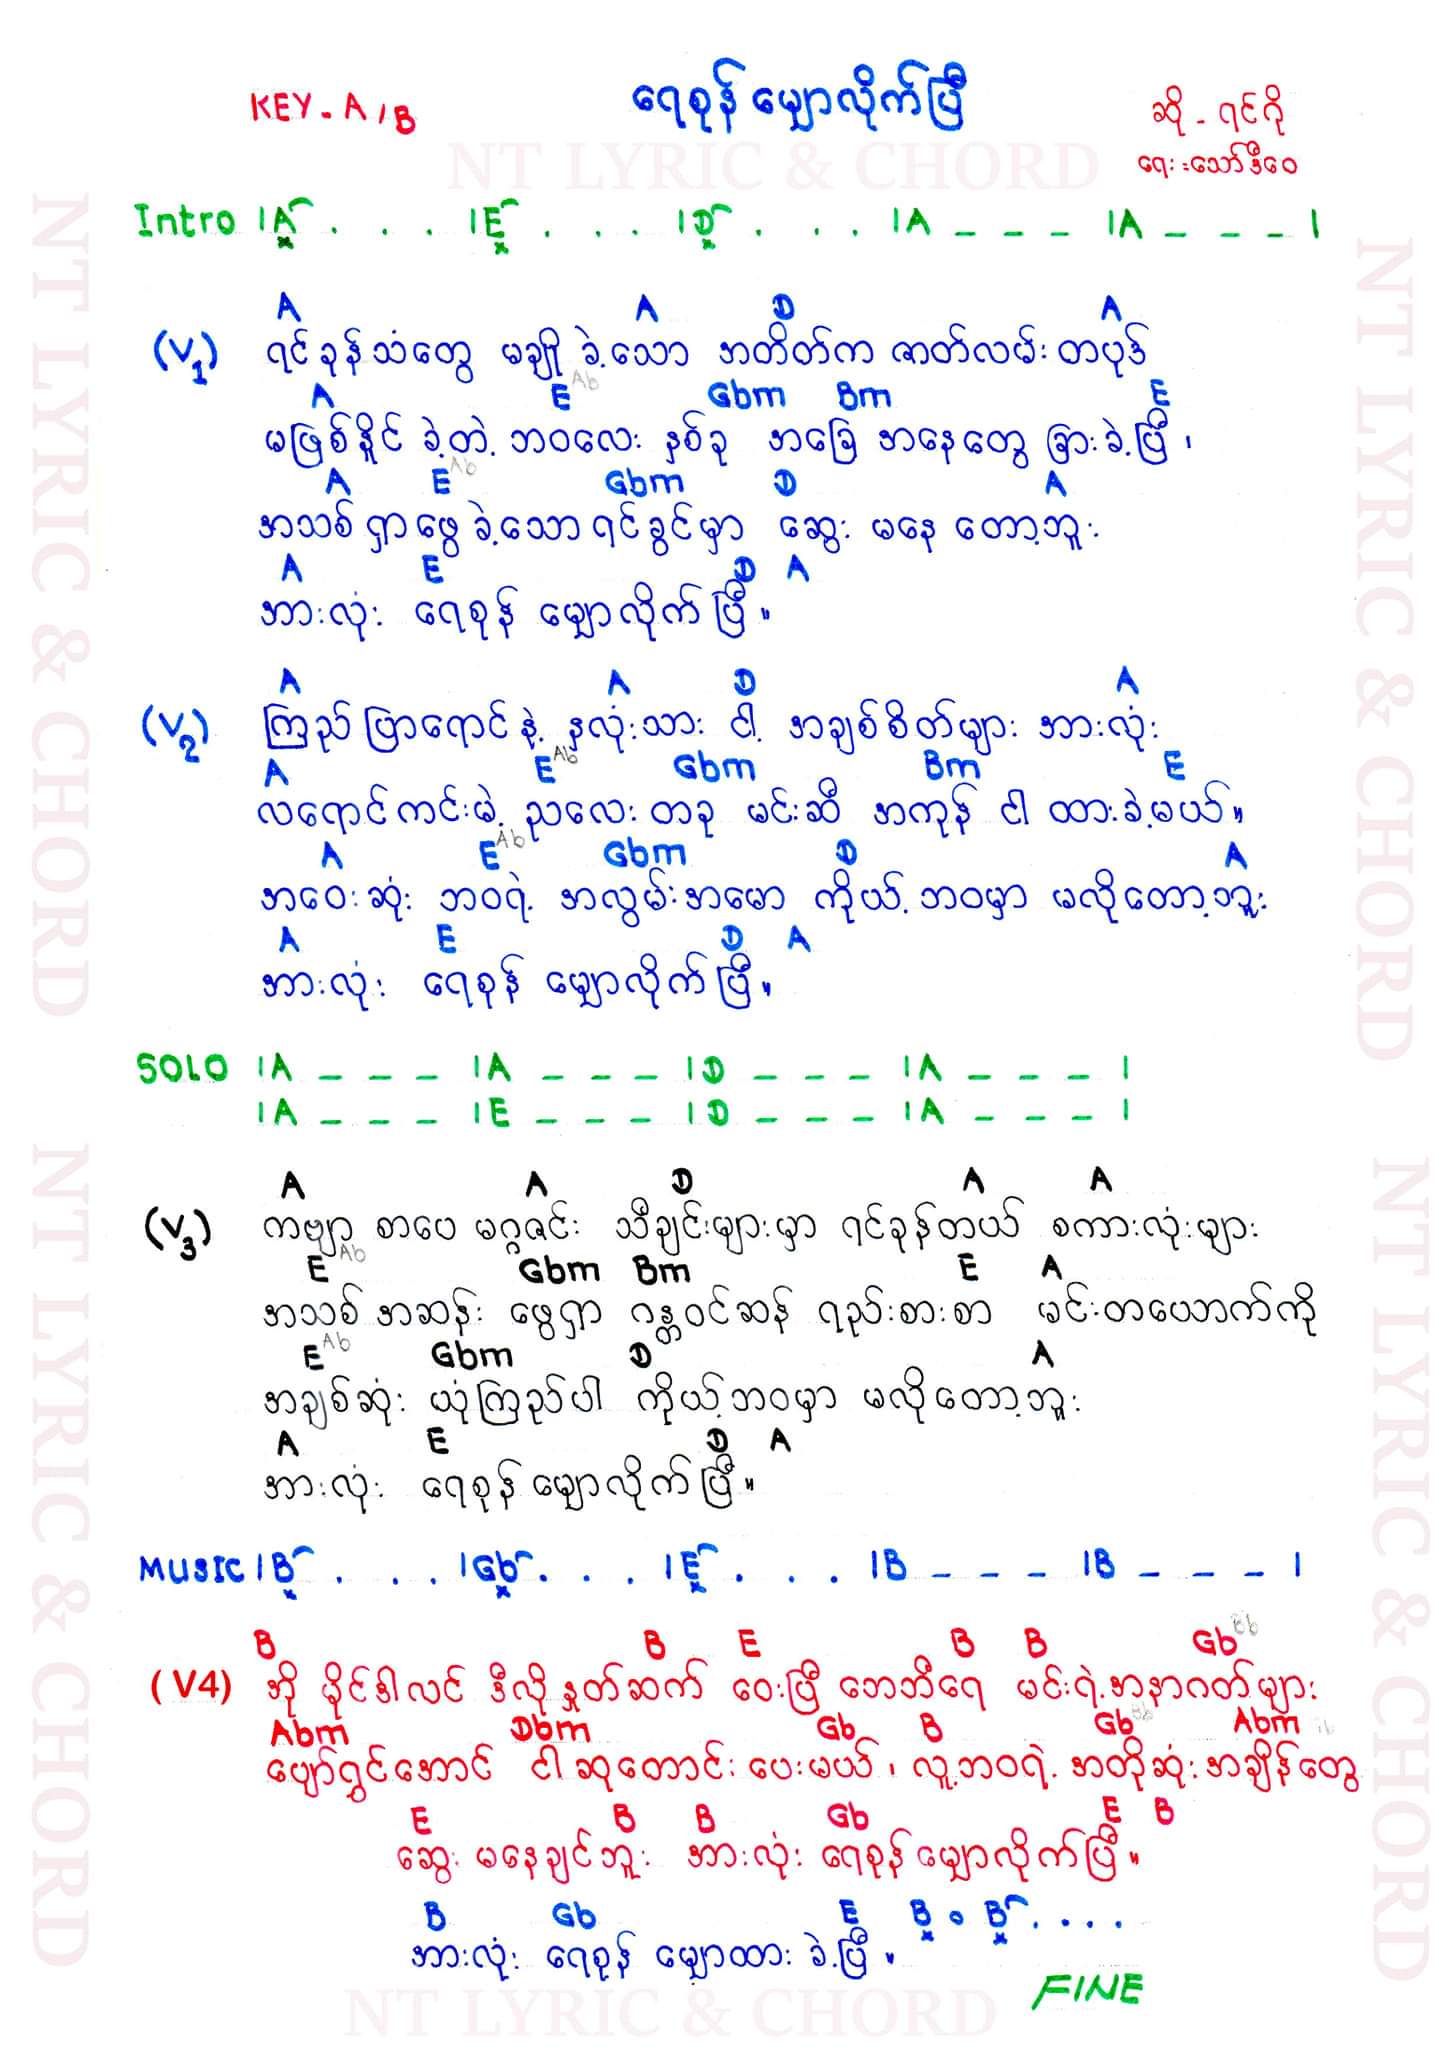 KEY - A / B
ရေစုန် မျှောလိုက်ပြီ
ဆို - ရင်ဂို
ရေး : သော်ဒီဝေ
NT LYRIC & CHORD
Intro | A . . . | E . . . | D . . . | A _ _ _ | A _ _ _ |
A A D A
(V1) ရင်ခုန်သံတွေ မချို ခဲ့သော အတိတ်က ဇာတ်လမ်း တပုဒ်
A E Ab Gbm Bm E
မဖြစ်နိူင် ခဲ့တဲ့ ဘဝလေး နှစ်ခု အခြေ အနေတွေ ခြားခဲ့ပြီ ၊
A E Ab Gbm D A
အသစ် ရှာဖွေ ခဲ့သော ရင်ခွင်မှာ ဆွေး မနေ တော့ဘူး
A E D A
အားလုံး ရေစုန် မျှောလိုက်ပြီ ။
A A D A
(V2) ကြည်ပြာရောင် နဲ့ နှလုံးသား ငါ့ အချစ်စိတ်များ အားလုံး
A E Ab Gbm Bm E
လရောင်ကင်းမဲ့ ညလေး တခု မင်းဆီ အကုန် ငါ ထားခဲ့မယ် ။
A E Ab Gbm D A
အဝေးဆုံး ဘဝရဲ့ အလွမ်းအမော ကိုယ့် ဘဝမှာ မလိုတော့ဘူး
A E D A
အားလုံး ရေစုန် မျှောလိုက်ပြီ ။
SOLO | A _ _ _ | A _ _ _ | D _ _ _ | A _ _ _ |
| A _ _ _ | E _ _ _ | D _ _ _ | A _ _ _ |
A A D A A
(V3) ကဗျာ စာပေ မဂ္ဂဇင်း သီချင်းများမှာ ရင်ခုန်တယ် စကားလုံးများ
E Ab Gbm Bm E A
အသစ် အဆန်း ဖွေရှာ ဂန္တဝင်ဆန် ရည်းစားစာ မင်းတယောက်ကို
E Ab Gbm D A
အချစ်ဆုံး ယုံကြည်ပါ ကိုယ့်ဘဝမှာ မလိုတော့ဘူး
A E D A
အားလုံး ရေစုန် မျှောလိုက်ပြီ ။
MUSIC | B . . . | Gb . . . | E . . . | B _ _ _ | B _ _ _ |
B B E B B Gb Bb
(V4) အို မိုင်ဒါလင် ဒီလို နှုတ်ဆက် ဝေးပြီ ဘေဘီရေ မင်းရဲ့အနာဂတ်များ
Abm Dbm Gb B Gb Bb Abm
ပျော်ရွှင်အောင် ငါ ဆုတောင်း ပေးမယ် ၊ လူ့ဘဝရဲ့ အတိုဆုံးအချိန်တွေ
E B B Gb E B
ဆွေး မနေချင်ဘူး အားလုံး ရေစုန် မျှောလိုက်ပြီ ။
B Gb E B . B . . . .
အားလုံး ရေစုန် မျှောထား ခဲ့ပြီ ။
FINE
NT LYRIC & CHORD
NT LYRIC & CHORD
NT LYRIC & CHORD
NT LYRIC & CHORD
NT LYRIC & CHORD